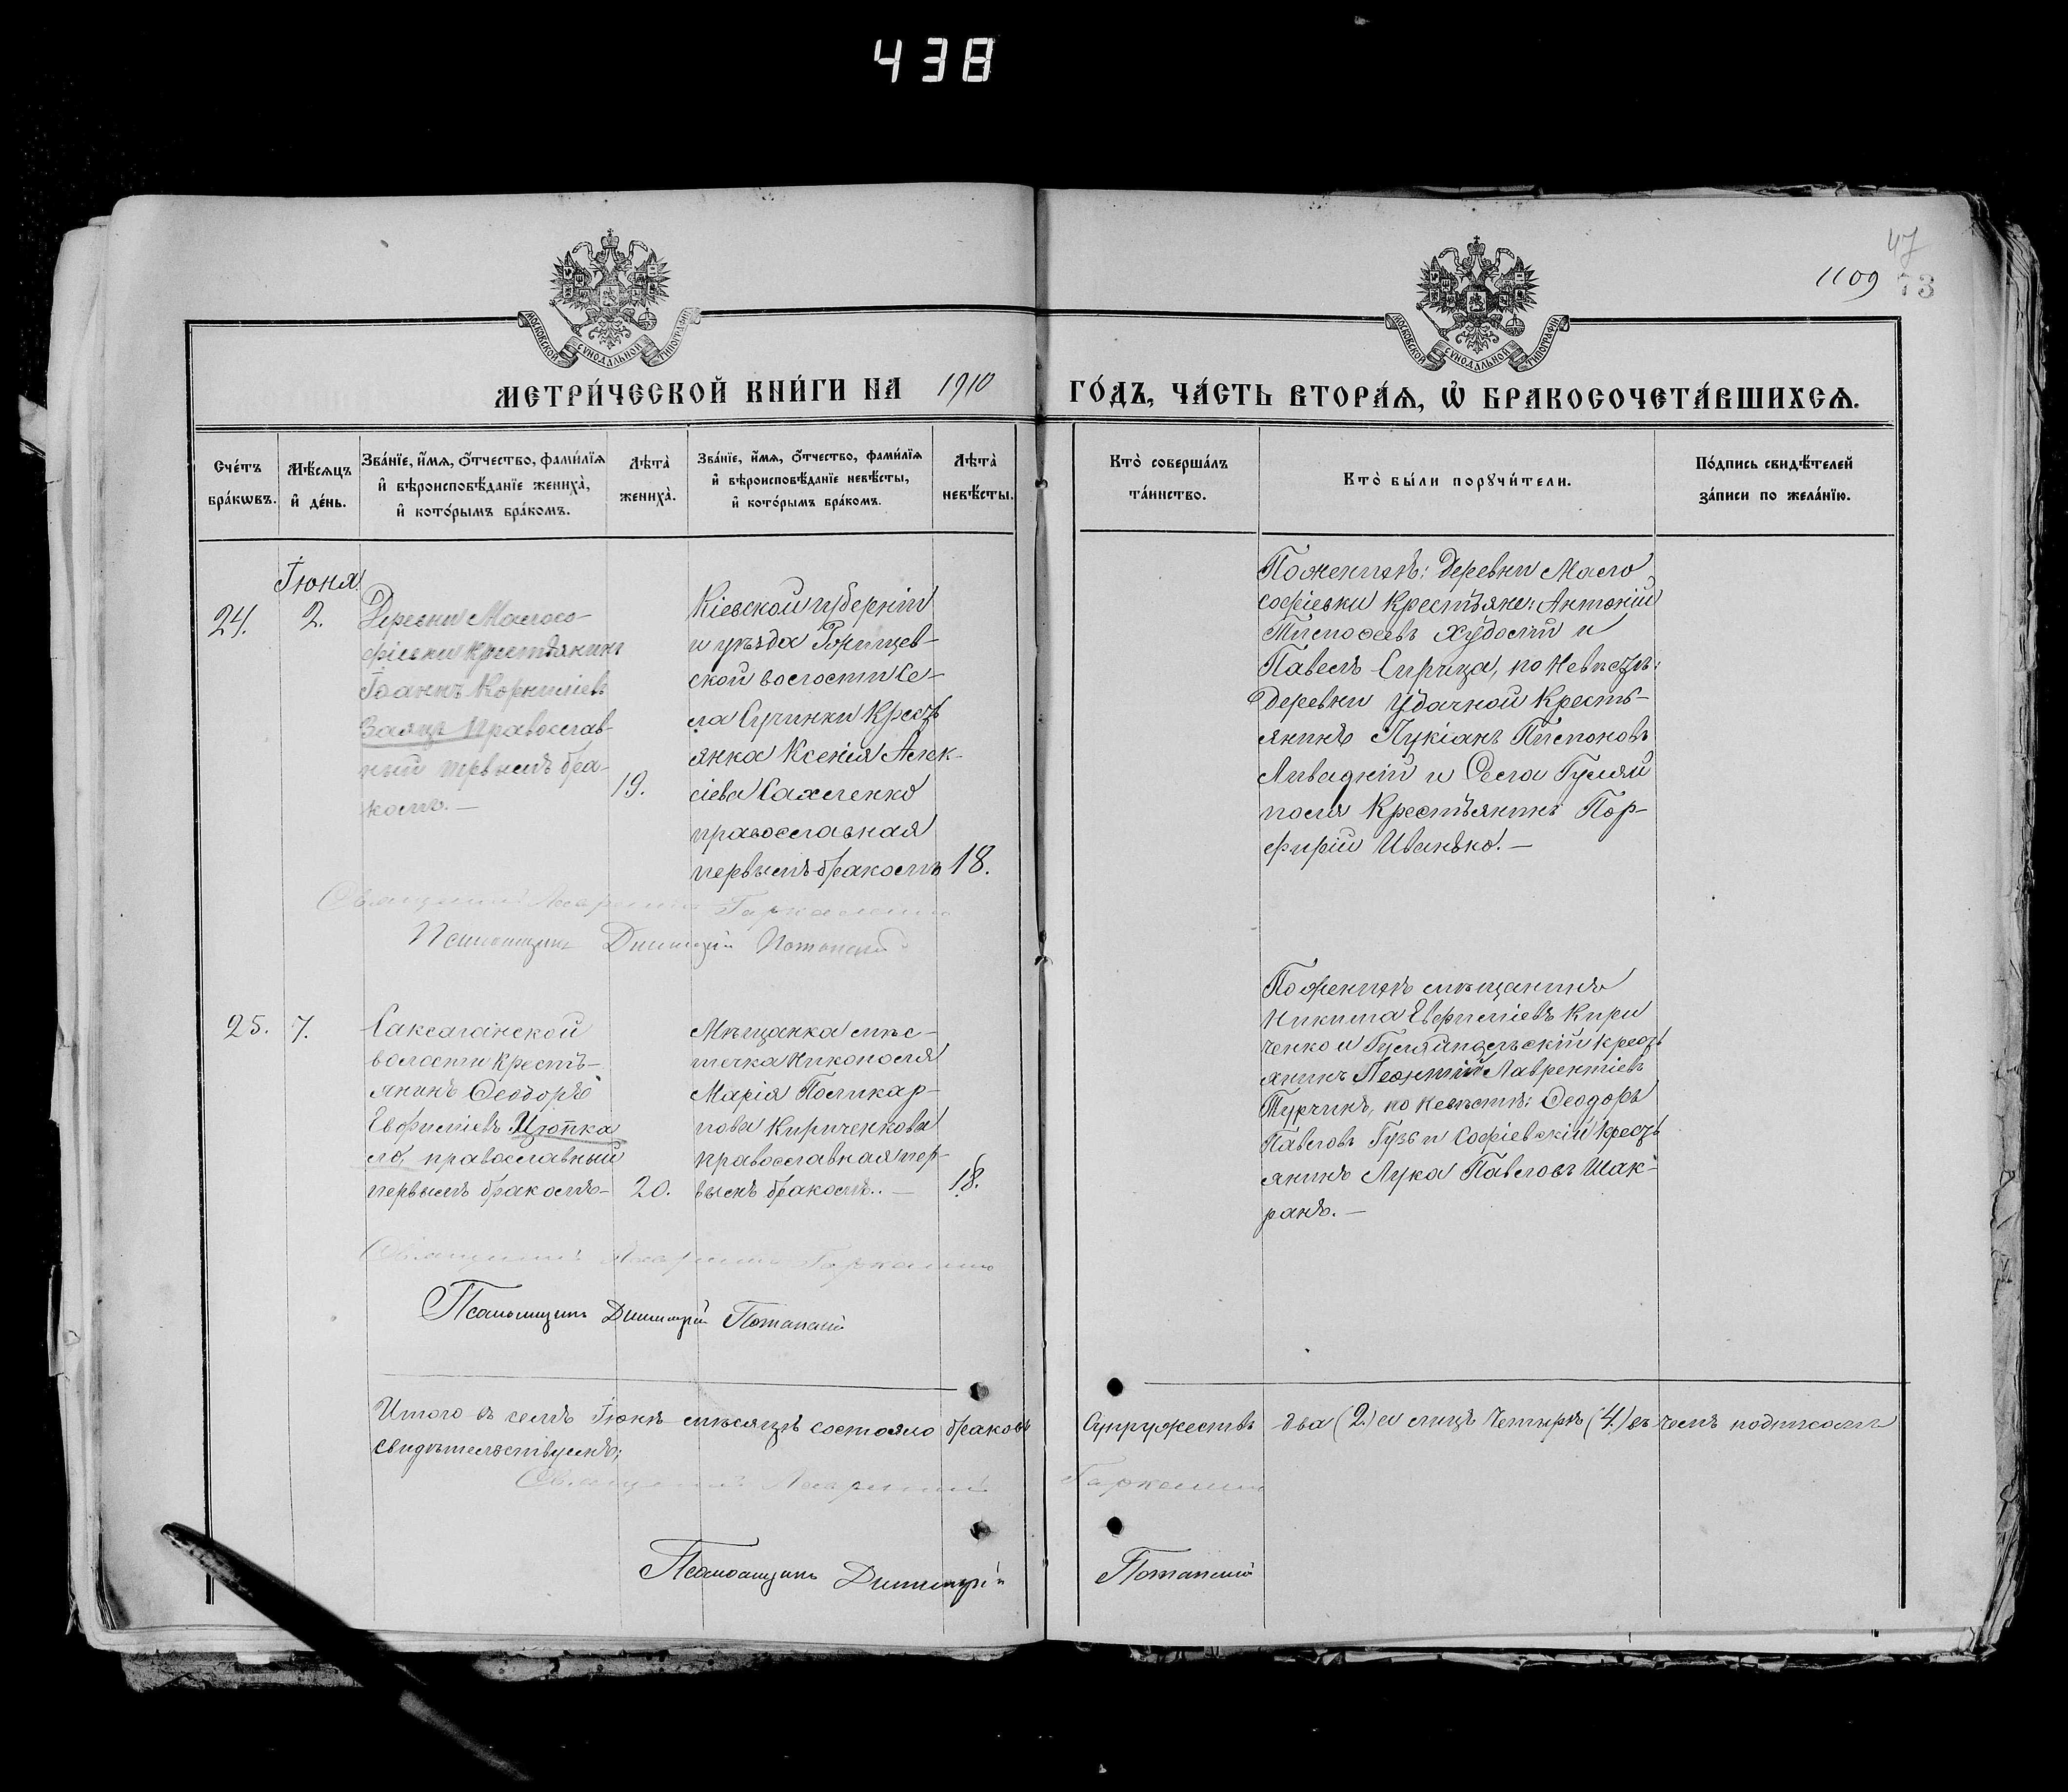 438
47
1109 73
МОСКОВСКОЙ СУНОДАЛЬНОЙ ТИПОГРАФІИ
МОСКОВСКОЙ СУНОДАЛЬНОЙ ТИПОГРАФІИ
МЕТРИ́ЧЕСКОЙ КНИ́ГИ НА 1910 ГО́ДЪ, ЧА́СТЬ ВТОРА́Ѧ, Ѽ БРАКОСОЧЕТА́ВШИХСѦ.
Сче́тъ бра́кѡвъ.
Мѣ́сѧцъ и҆ де́нь.
Зва́нїе, и҆́мѧ, ѻ҆́тчество, фами́лїѧ
и҆ вѣроисповѣ́данїе жениха̀,
и҆ кото́рымъ бра́комъ.
Лѣта̀ жениха̀.
Зва́нїе, и҆́мѧ, ѻ҆́тчество, фами́лїѧ
и҆ вѣроисповѣ́данїе невѣ́сты,
и҆ кото́рымъ бра́комъ.
Лѣта̀ невѣ́сты.
Кто̀ соверша́лъ
та́инство.
Кто̀ бы́ли порꙋчи́тели.
По́дпись свидѣ́телей
за́писи по жела́нїю.
Іюня
24.
2.
Деревни Малосо-
фіевки крестьянинъ
Іоаннъ Корниліевъ
Заяцъ православ-
ный первымъ бра-
комъ. —
19.
Кіевской губерніи
и уѣзда
ской волости Се-
ла Сучинки Крест
янка Ксенія Алек-
сіева Сахненко
православная
первымъ бракомъ
18.
По женихѣ: Деревни Мало
софіевки Крестьяне: Антоній
Худолій и
Павелъ Сирица, по Невѣстѣ:
Деревни Удачной Кресть-
янинъ Лукіанъ
Ливадній и Села Гуляй
поля Крестьянинъ Пор-
фирій Иванько. —
Священникъ
Псаломщикъ Димитрій Потапскій
25.
7.
Саксаганской
волости Кресть-
янинъ Ѳеодоръ
Евфиміевъ Цюпка
ло, православный
первымъ бракомъ-
20.
Мѣщанка мѣс-
течка Никополя
Марія Поликар-
пова Кириченкова
православная пер-
вымъ бракомъ. —
18.
По женихѣ мѣщанинъ
Никита Евфиміевъ Кири
ченко и Гуляйпольскій крест
янинъ Леонтій Лаврентіевъ
Турчинъ, по невѣстѣ: Ѳеодоръ
Павловъ Гузь и Софіевскій крест
янинъ Лука Павловъ Шак-
ранъ. —
Священникъ
Псаломщикъ Димитрій Потапскій
Итого въ семъ Іюнѣ мѣсяцѣ состояло браковъ Супружествъ два (2) а лицъ Четыре (4) въ чемъ подписомъ
свидѣтельствуемъ;
Священникъ
Псаломщикъ Димитрій Потапскій